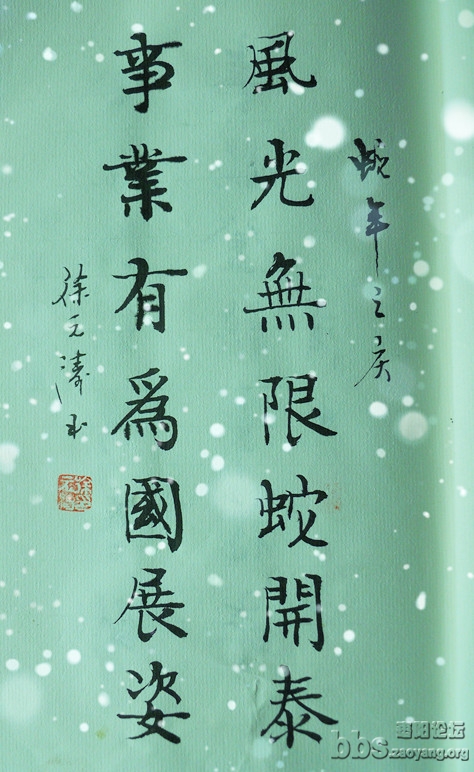 蛇年之庆
風光無限蛇開泰
事業有為國展姿
徐元濤书
枣阳论坛
bbs.zaoyang.org